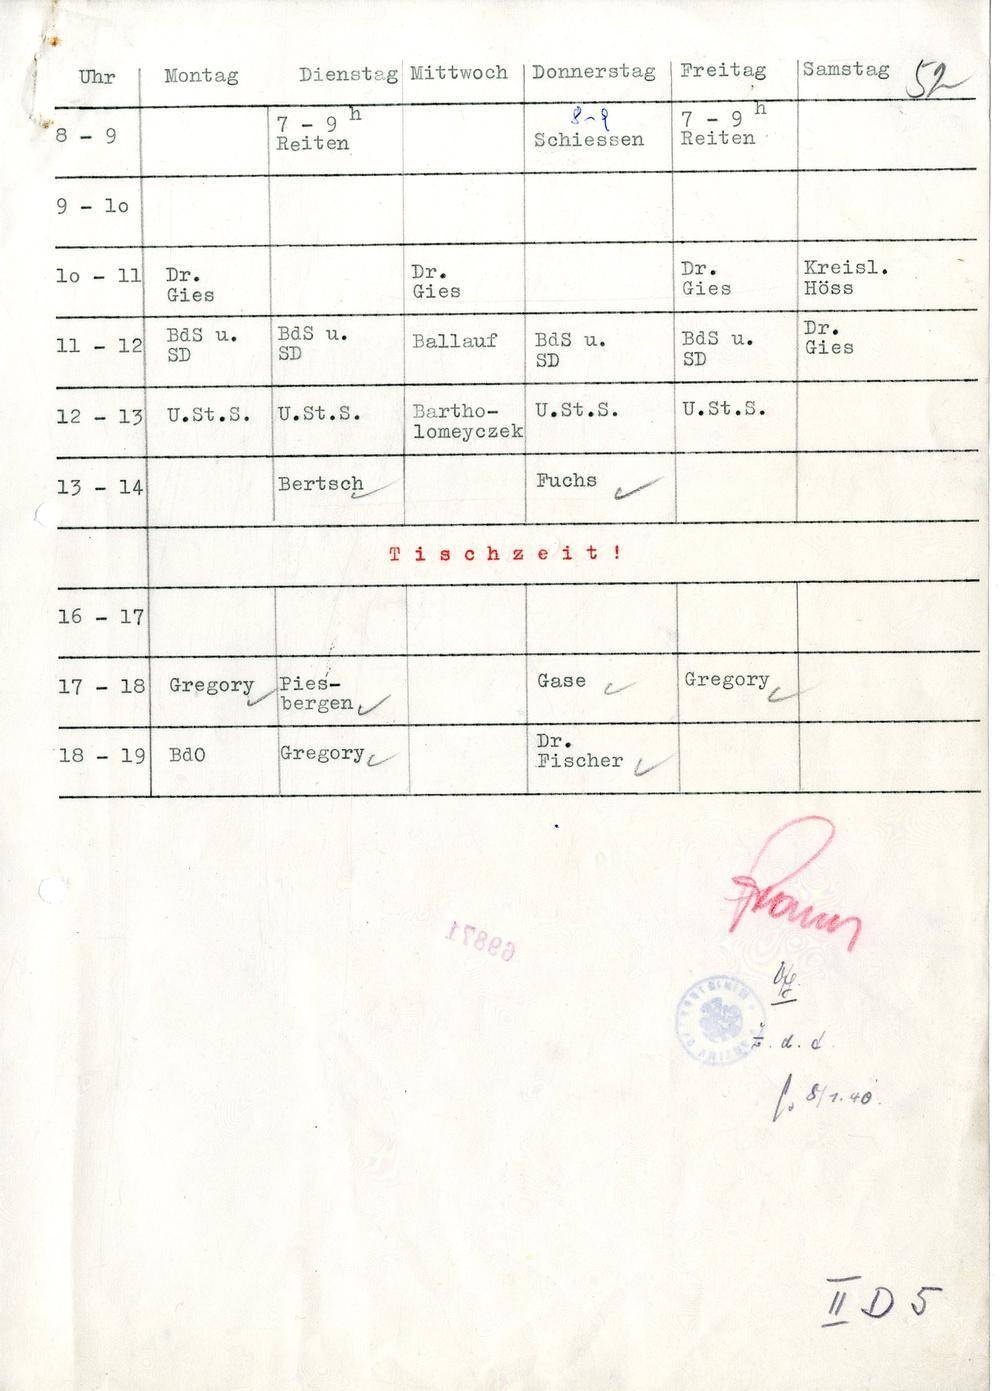 Uhr Montag Dienstag Mittwoch Donnerstag Freitag Samstag 52
8 - 9 7 - 9 h Reiten 8-9 Schiessen 7 - 9 h Reiten
9 - lo
lo - 11 Dr. Gies Dr. Gies Dr. Gies Kreisl. Höss
11 - 12 BdS u. SD BdS u. SD Ballauf BdS u. SD BdS u. SD Dr. Gies
12 - 13 U.St.S. U.St.S. Bartho- lomeyczek U.St.S. U.St.S.
13 - 14 Bertsch Fuchs
Tischzeit!
16 - 17
17 - 18 Gregory Pies- bergen Gase Gregory
18 - 19 BdO Gregory Dr. Fischer
69871
z. d. A.
8/1.40.
II D 5